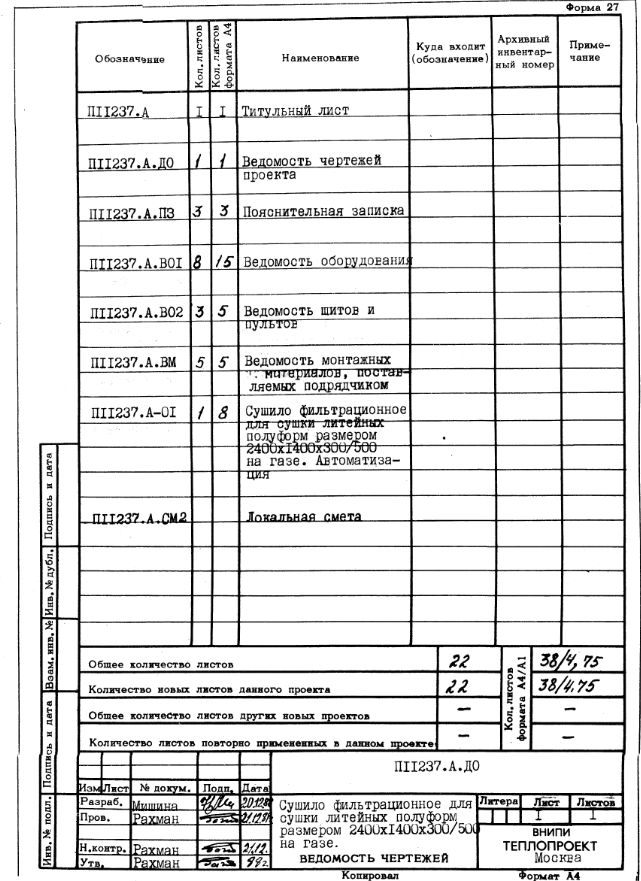 Форма 27
Обозначение Кол. листов Кол. листов формата А4 Наименование Куда входит (обозначение) Архивный инвентарный номер Приме-чание
ПII237.А I I Титульный лист
ПII237.А.ДО 1 1 Ведомость чертежей
проекта
ПII237.А.ПЗ 3 3 Пояснительная записка
ПII237.А.ВОI 8 15 Ведомость оборудования
ПII237.А.ВО2 3 5 Ведомость щитов и
пультов
ПII237.А.ВМ 5 5 Ведомость монтажных
материалов, постав-
ляемых подрядчиком
ПII237.А-ОI 1 8 Сушило фильтрационное
для сушки литейных
полуформ размером
2400хI400х300/500
на газе. Автоматиза-
ция
ПII237.А.СМ2 Локальная смета
Общее количество листов 22 Кол. листов формата А4/А1 38/4,75
Количество новых листов данного проекта 22 38/4.75
Общее количество листов других новых проектов – –
Количество листов повторно примененных в данном проекте – –
Подпись и дата
Инв. № дубл.
Взам. инв. №
Подпись и дата
Инв. № подл.
ПII237.А.ДО
Изм Лист № докум. Подп. Дата
Разраб. Мишина
Пров. Рахман
Н.контр. Рахман 21.12.
Утв. Рахман
Сушило фильтрационное для
сушки литейных полуформ
размером 2400хI400х300/500
на газе.
ВЕДОМОСТЬ ЧЕРТЕЖЕЙ
Литера Лист Листов
I I
ВНИПИ
ТЕПЛОПРОЕКТ
Москва
Копировал Формат А4